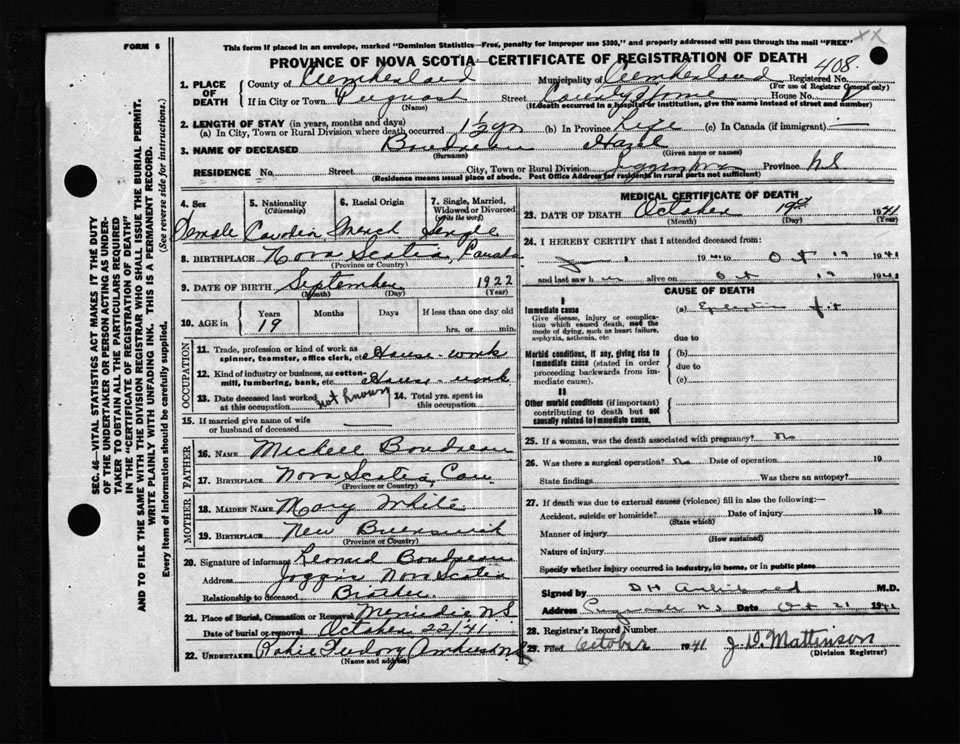 FORM 6
This form if placed in an envelope, marked "Dominion Statistics—Free, penalty for improper use $300," and properly addressed will pass through the mail "FREE"
XX
PROVINCE OF NOVA SCOTIA—CERTIFICATE OF REGISTRATION OF DEATH
408
1. PLACE OF DEATH
County of Cumberland Municipality of Cumberland Registered No.
(For use of Registrar General only)
If in City or Town Pugwash Street County Home House No.
(Name) (If death occurred in a hospital or institution, give the name instead of street and number)
2. LENGTH OF STAY (in years, months and days)
(a) In City, Town or Rural Division where death occurred 1½ yr (b) In Province Life (c) In Canada (if immigrant) —
3. NAME OF DECEASED Boudreau Hazel
(Surname) (Given name or names)
RESIDENCE No. Street City, Town or Rural Division Joggins Mines Province N.S.
(Residence means usual place of abode. Post Office Address for residents in rural parts not sufficient)
4. Sex
5. Nationality (Citizenship)
6. Racial Origin
7. Single, Married, Widowed or Divorced (Write the word)
Female Canadian French Single
8. BIRTHPLACE Nova Scotia, Canada
(Province or Country)
9. DATE OF BIRTH September 1922
(Month) (Day) (Year)
10. AGE in Years Months Days If less than one day old
19 hrs. or min.
OCCUPATION
11. Trade, profession or kind of work as spinner, teamster, office clerk, etc. House-work
12. Kind of industry or business, as cotton-mill, lumbering, bank, etc. House-work
13. Date deceased last worked at this occupation not known
14. Total yrs. spent in this occupation
15. If married give name of wife or husband of deceased —
FATHER
16. NAME Michell Boudreau
17. BIRTHPLACE Nova Scotia, Can
(Province or Country)
MOTHER
18. MAIDEN NAME Mary White
19. BIRTHPLACE New Brunswick
(Province or Country)
20. Signature of informant Leonard Boudreau
Address Joggins Nova Scotia
Relationship to deceased Brother
21. Place of Burial, Cremation or Removal Menudie N.S.
Date of burial or removal October 22/41
22. UNDERTAKER Amherst N.S.
(Name and address)
MEDICAL CERTIFICATE OF DEATH
23. DATE OF DEATH October 19th 1941
(Month) (Day) (Year)
24. I HEREBY CERTIFY that I attended deceased from:
1 1941 to Oct 19 1941
and last saw h er alive on Oct 19 1941
CAUSE OF DEATH
I
Immediate cause
Give disease, injury or complication which caused death, not the mode of dying, such as heart failure, asphyxia, asthenia, etc
(a) fit
due to
Morbid conditions, if any, giving rise to immediate cause (stated in order proceeding backwards from immediate cause).
(b)
due to
(c)
II
Other morbid conditions (if important) contributing to death but not causally related to immediate cause.
25. If a woman, was the death associated with pregnancy? No
26. Was there a surgical operation? No Date of operation 19
State findings Was there an autopsy?
27. If death was due to external causes (violence) fill in also the following:—
Accident, suicide or homicide? Date of injury 19
(State which)
Manner of injury
(How sustained)
Nature of injury
Specify whether injury occurred in industry, in home, or in public place
Signed by M.D.
Address N.S. Date Oct 21 1941
28. Registrar's Record Number
29. Filed October 1941 J. D. Mattinson
(Division Registrar)
SEC. 46—VITAL STATISTICS ACT MAKES IT THE DUTY
OF THE UNDERTAKER OR PERSON ACTING AS UNDER-
TAKER TO OBTAIN ALL THE PARTICULARS REQUIRED
IN THE "CERTIFICATE OF REGISTRATION OF DEATH"
AND TO FILE THE SAME WITH THE DIVISION REGISTRAR WHO SHALL ISSUE THE BURIAL PERMIT.
WRITE PLAINLY WITH UNFADING INK. THIS IS A PERMANENT RECORD.
Every item of information should be carefully supplied. (See reverse side for instructions.)